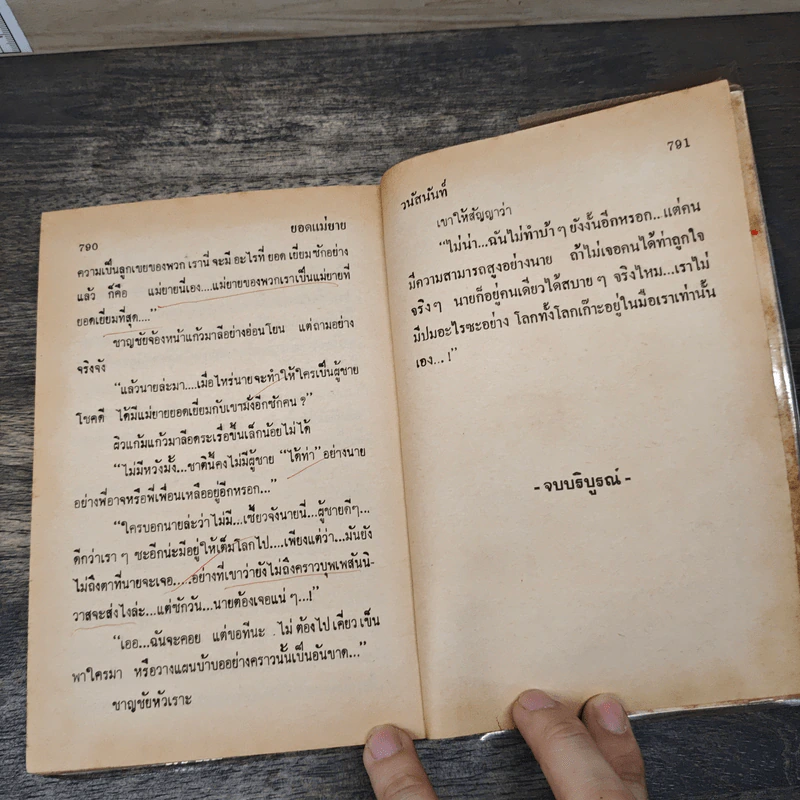 790
ยอดแม่ยาย
ความเป็นลูกเขยของพวกเรานี่ จะมีอะไรที่ยอดเยี่ยมซักอย่าง
แล้ว ก็คือ แม่ยายนี่เอง....แม่ยายของพวกเราเป็นแม่ยายที่
ยอดเยี่ยมที่สุด....”
ชาญชัยจ้องหน้าแก้วมาลีอย่างอ่อนโยน แต่ถามอย่าง
จริงจัง
“แล้วนายล่ะมา....เมื่อไหร่นายจะทำให้ใครเป็นผู้ชาย
โชคดี ได้มีแม่ยายยอดเยี่ยมกับเขามั่งอีกซักคน ?”
ผิวแก้มแก้วมาลีอดระเรื่อขึ้นเล็กน้อยไม่ได้
“ไม่มีหวังมั้ง...ชาตินี้คงไม่มีผู้ชาย “ได้ท่า” อย่างนาย
อย่างพี่อาจหรือพี่เพื่อนเหลืออยู่อีกหรอก...”
“ใครบอกนายล่ะว่าไม่มี...เชี้ยวจังนายนี่...ผู้ชายดีๆ...
ดีกว่าเรา ๆ ซะอีกน่ะมีอยู่ให้เต็มโลกไป....เพียงแต่ว่า...มันยัง
ไม่ถึงตาที่นายจะเจอ.....อย่างที่เขาว่ายังไม่ถึงคราวบุพเพสันนิ-
วาสจะส่งไงล่ะ...แต่ซักวัน...นายต้องเจอแน่ ๆ...!”
“เออ...ฉันจะคอย แต่ขอทีนะ ไม่ต้องไปเคี่ยวเข็น
พาใครมา หรือวางแผนบ้าบออย่างคราวนั้นเป็นอันขาด...”
ชาญชัยหัวเราะ
วนัสนันท์
791
เขาให้สัญญาว่า
“ไม่น่า...ฉันไม่ทำบ้าๆ ยังงั้นอีกหรอก...แต่คน
มีความสามารถสูงอย่างนาย ถ้าไม่เจอคนได้ท่าถูกใจ
จริงๆ นายก็อยู่คนเดียวได้สบายๆ จริงไหม...เราไม่
มีปมอะไรซะอย่าง โลกทั้งโลกเก๊าะอยู่ในมือเราเท่านั้น
เอง...!”
- จบบริบูรณ์ -